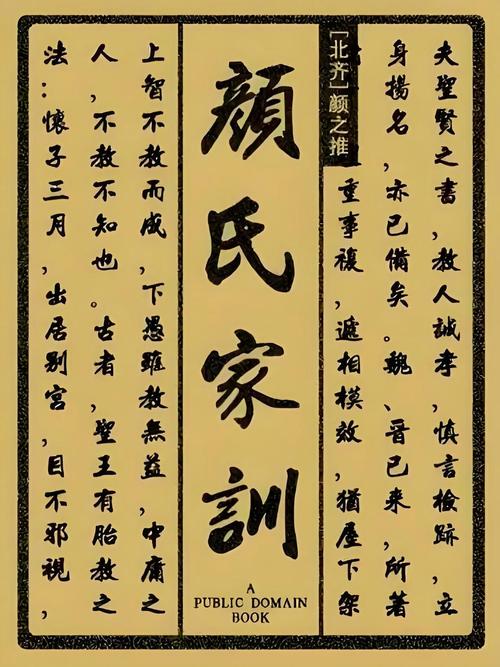 夫聖賢之書，教人誠孝，慎言檢跡，立
身揚名，亦已備矣。魏、晉已來，所著
重事複，遞相模效，猶屋下架
[北齐]颜之推
顔氏家訓
上智不教而成，下愚雖教無益，中庸之
人，不教不知也。古者，聖王有胎教之
法：懷子三月，出居别宮，目不邪視，
A
PUBLIC DOMAIN
BOOK